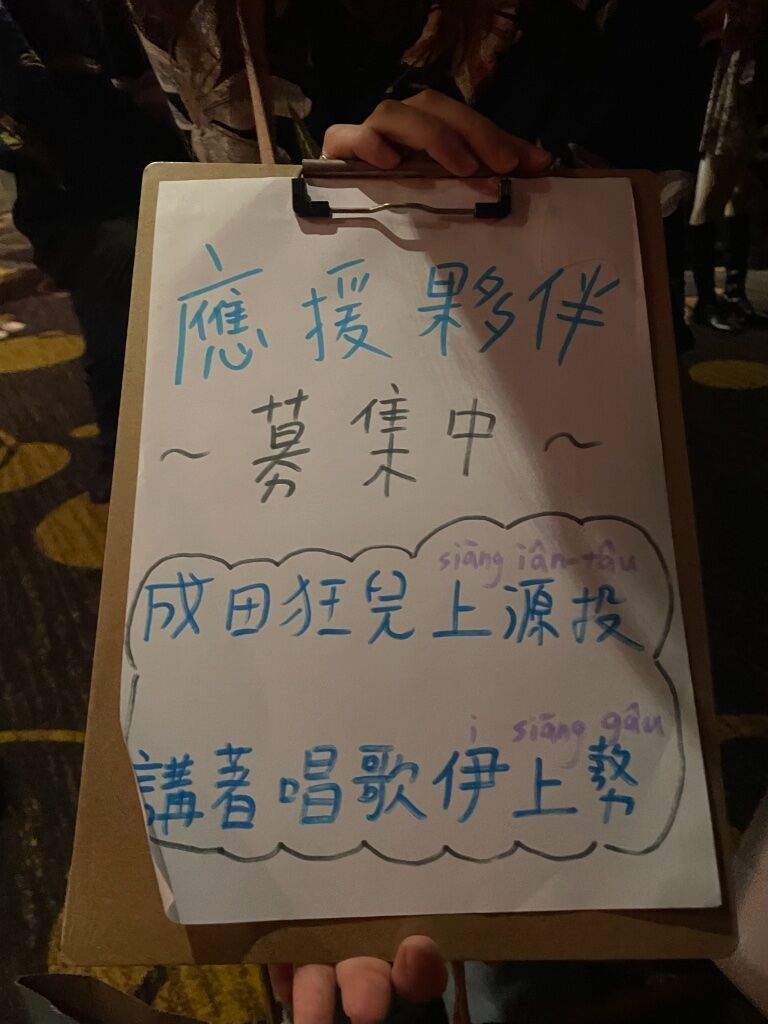 應援夥伴
~募集中~
siāng iân-tâu
成田狂兒上源投
i siāng gâu
講著唱歌伊上勢